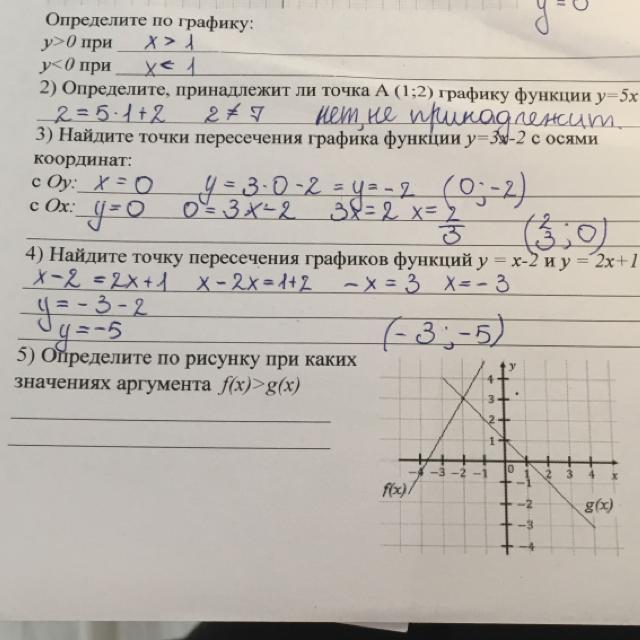 y=0
Определите по графику:
y>0 при x > 1
y<0 при x < 1
2) Определите, принадлежит ли точка А (1;2) графику функции y=5x
2 = 5·1+2 2 ≠ 7 нет, не принадлежит.
3) Найдите точки пересечения графика функции y=3x-2 с осями
координат:
с Oy: x = 0 y = 3·0-2 = y = -2 (0; -2)
с Ox: y = 0 0 = 3x-2 3x = 2 x = 2/3 (2/3; 0)
4) Найдите точку пересечения графиков функций y = x-2 и y = 2x+1
x-2 = 2x+1 x-2x = 1+2 -x = 3 x = -3
y = -3-2
y = -5 (-3; -5)
5) Определите по рисунку при каких
значениях аргумента f(x)>g(x)
y
4
3
2
1
-4 -3 -2 -1 0 1 2 3 4 x
-1
-2
-3
-4
f(x)
g(x)